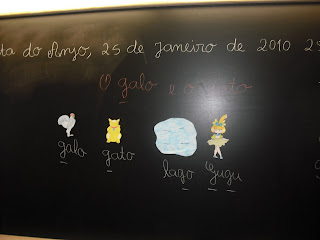 ta do Anjo, 25 de Janeiro de 2010 2
O galo e o gato
galo gato
lago Gugu